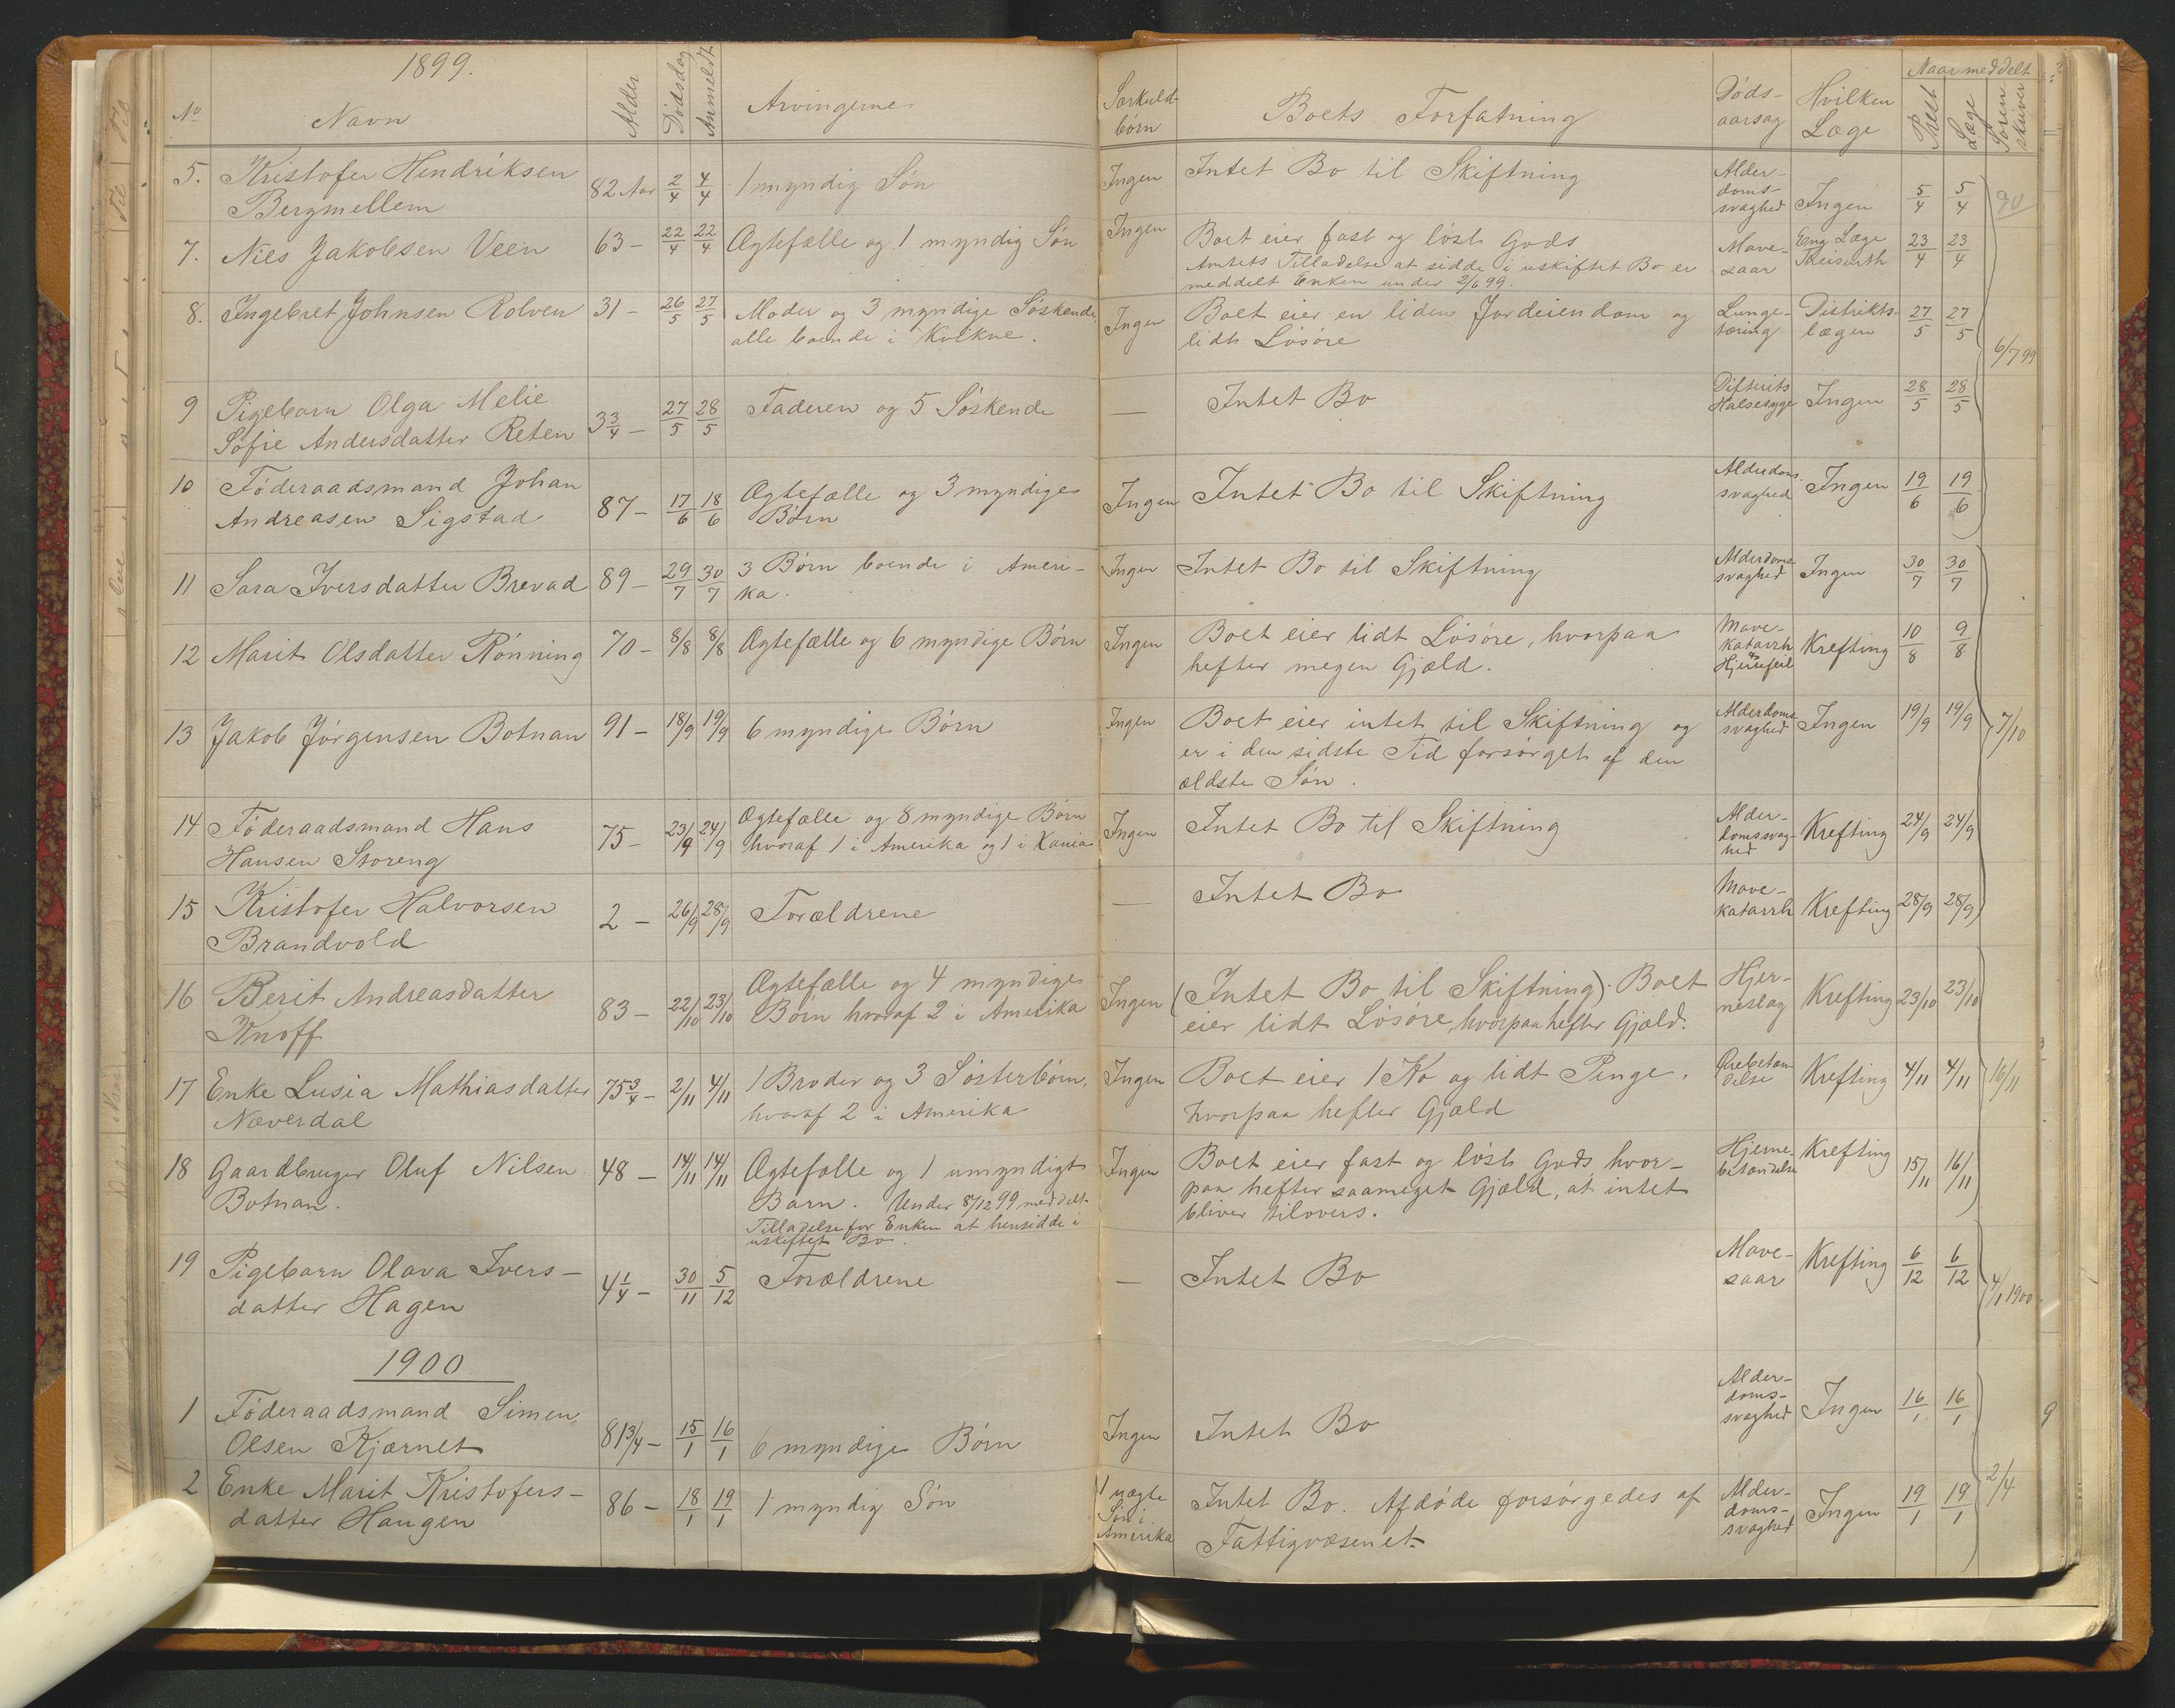 1899.
No Navn Alder Dödsdag Anmeldt Arvingerne Særkuld- Boets Forfatning Döds- Hvilken Naar meddelt
börn aarsag Læge Prest Læge Soren
skriver
5. Kristofer Hendriksen 82 Aar 2/4 4/4 1 myndig Sön Ingen Intet Bo til Skiftning Alder-
Bergmellem doms-
svaghed Ingen 5/4 5/4
7. Nils Jakobsen Veen 63 - 22/4 22/4 Ægtefælle og 1 myndig Sön Ingen Boet eier fast og löst Gods Mave- Læge 23/4 23/4
Amtets Tilladelse at sidde i uskiftet Bo er saar
meddelt Enken under 2/6 99.
8. Ingebret Johnsen Rolven 31 - 26/5 27/5 Moder og 3 myndige Söskende Ingen Boet eier en liden Jordeiendom og Lunge- Distrikts- 27/5 27/5
alle boende i Kvikne. lidt Lösöre tæring lægen 6/7 99
9 Pigebarn Olga Melie 3 3/4 - 27/5 28/5 Faderen og 5 Söskende — Intet Bo Difterits Ingen 28/5 28/5
Sofie Andersdatter Reten Halsesyge
10 Föderaadsmand Johan 87 - 17/6 18/6 Ægtefælle og 3 myndige Ingen Intet Bo til Skiftning Alderdoms Ingen 19/6 19/6
Andreasen Sigstad Börn svaghed
11 Sara Iversdatter Brevad 89 - 29/7 30/7 3 Börn boende i Ameri- Ingen Intet Bo til Skiftning Alderdoms Ingen 30/7 30/7
ka. svaghed
12 Marit Olsdatter Rönning 70 - 8/8 8/8 Ægtefælle og 6 myndige Börn Ingen Boet eier lidt Lösöre, hvorpaa Mave- Krefting 10/8 9/8
hefter megen Gjæld. katarrh
& Hjertefeil
13 Jakob Jörgensen Botnan 91 - 18/9 19/9 6 myndige Börn Ingen Boet eier intet til Skiftning og Alderdoms Ingen 19/9 19/9 7/10
er i den sidste Tid forsörget af den svaghed
ældste Sön.
14 Föderaadsmand Hans 75 - 23/9 24/9 Ægtefælle og 8 myndige Börn Ingen Intet Bo til Skiftning Alder- Krefting 24/9 24/9
Hansen Storeng hvoraf 1 i Amerika og 1 i Kania domssvag-
hed
15 Kristofer Halvorsen 2 - 26/9 28/9 Forældrene — Intet Bo Mave- Krefting 28/9 28/9
Brandvold katarrh
16 Berit Andreasdatter 83 - 22/10 23/10 Ægtefælle og 4 myndige Ingen (Intet Bo til Skiftning). Boet Hjer- Krefting 23/10 23/10
Knoff Börn hvoraf 2 i Amerika eier lidt Lösöre, hvorpaa hefter Gjæld. neslag
17 Enke Lusia Mathiasdatter 75 3/4 - 2/11 4/11 1 Broder og 3 Sösterbörn, Ingen Boet eier 1 Ko og lidt Penge. Krefting 4/11 4/11 16/11
Næverdal hvoraf 2 i Amerika hvorpaa hefter Gjæld
18 Gaardbruger Oluf Nilsen 48 - 14/11 14/11 Ægtefælle og 1 umyndigt Ingen Boet eier fast og löst Gods hvor- Hjerne Krefting 15/11 16/11
Botnan. Barn. Under 8/12 99 meddelt paa hefter saameget Gjæld, at intet betændelse
Tilladelse for Enken at hensidde i bliver tilovers.
uskiftet Bo.
19 Pigebarn Olava Ivers- 4 1/4 - 30/11 5/12 Forældrene — Intet Bo Mave- Krefting 6/12 6/12 4/1 1900
datter Hagen saar
1900
1 Föderaadsmand Simen 81 3/4 - 15/1 16/1 6 myndige Börn Ingen Intet Bo Alder- Ingen 16/1 16/1 9
Olsen Kjærnet doms-
svaghed
2 Enke Marit Kristofers- 86 - 18/1 19/1 1 myndig Sön 1 uægte Intet Bo. Afdöde forsörgedes af Alder- Ingen 19/1 19/1 2/4
datter Haugen Sön i Fattigvæsenet doms-
Amerika svaghed